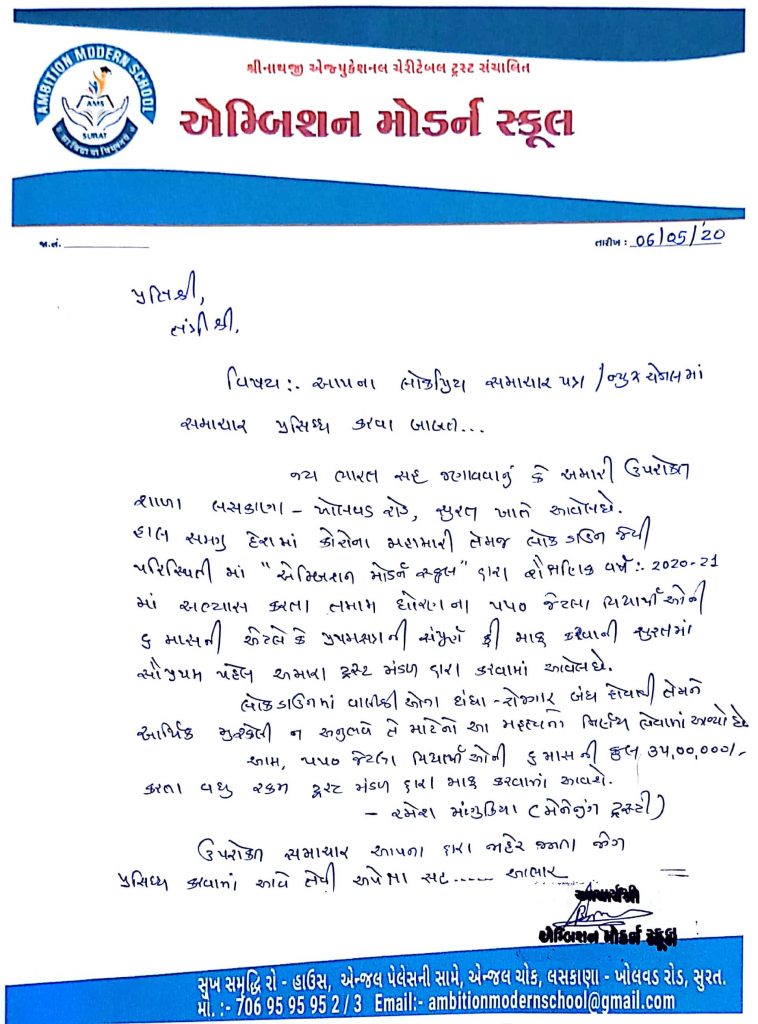 AMBITION MODERN SCHOOL
AMS
SURAT
सा विद्या या विमुक्तये
શ્રીનાથજી એજ્યુકેશનલ ચેરીટેબલ ટ્રસ્ટ સંચાલિત
એમ્બિશન મોડર્ન સ્કૂલ
જા.નં.
તારીખ : 06/05/'20
પ્રતિશ્રી,
તંત્રીશ્રી,
વિષય :- આપના લોકપ્રિય સમાચાર પત્ર / ન્યુઝ ચેનલમાં
સમાચાર પ્રસિધ્ધ કરવા બાબત...
જય ભારત સહ જણાવવાનું કે અમારી ઉપરોક્ત
શાળા લસકાણા - ખોલવડ રોડ, સુરત ખાતે આવેલ છે.
હાલ સમગ્ર દેશમાં કોરોના મહામારી તેમજ લોકડાઉન જેવી
પરિસ્થિતી માં "એમ્બિશન મોડર્ન સ્કૂલ" દ્વારા શૈક્ષણિક વર્ષ :- 2020-21
માં અભ્યાસ કરતા તમામ ધોરણના ૫૫૦ જેટલા વિદ્યાર્થીઓની
૬ માસની એટલે કે પ્રથમસત્રની સંપૂર્ણ ફી માફ કરવાની સુરતમાં
સૌપ્રથમ પહેલ અમારા ટ્રસ્ટ મંડળ દ્વારા કરવામાં આવેલ છે.
લોકડાઉનમાં વાલીશ્રી ઓના ધંધા - રોજગાર બંધ હોવાથી તેમને
આર્થિક મુશ્કેલી ન અનુભવે તે માટેનો આ મહત્વનો નિર્ણય લેવામાં આવ્યો છે.
આમ, ૫૫૦ જેટલા વિદ્યાર્થીઓની ૬ માસ ની કુલ ૩૫,૦૦,૦૦૦/-
કરતા વધુ રકમ ટ્રસ્ટ મંડળ દ્વારા માફ કરવામાં આવશે.
- રમેશ માંગુકિયા (મેનેજીંગ ટ્રસ્ટી)
ઉપરોક્ત સમાચાર આપના દ્વારા જાહેર જનતા જોગ
પ્રસિધ્ધ કરવામાં આવે તેવી અપેક્ષા સહ..... આભાર
આચાર્યશ્રી
એમ્બિશન મોડર્ન સ્કૂલ
સુખ સમૃદ્ધિ રો - હાઉસ, એન્જલ પેલેસની સામે, એન્જલ ચોક, લસકાણા - ખોલવડ રોડ, સુરત.
મો. :- 706 95 95 95 2 / 3 Email:- ambitionmodernschool@gmail.com